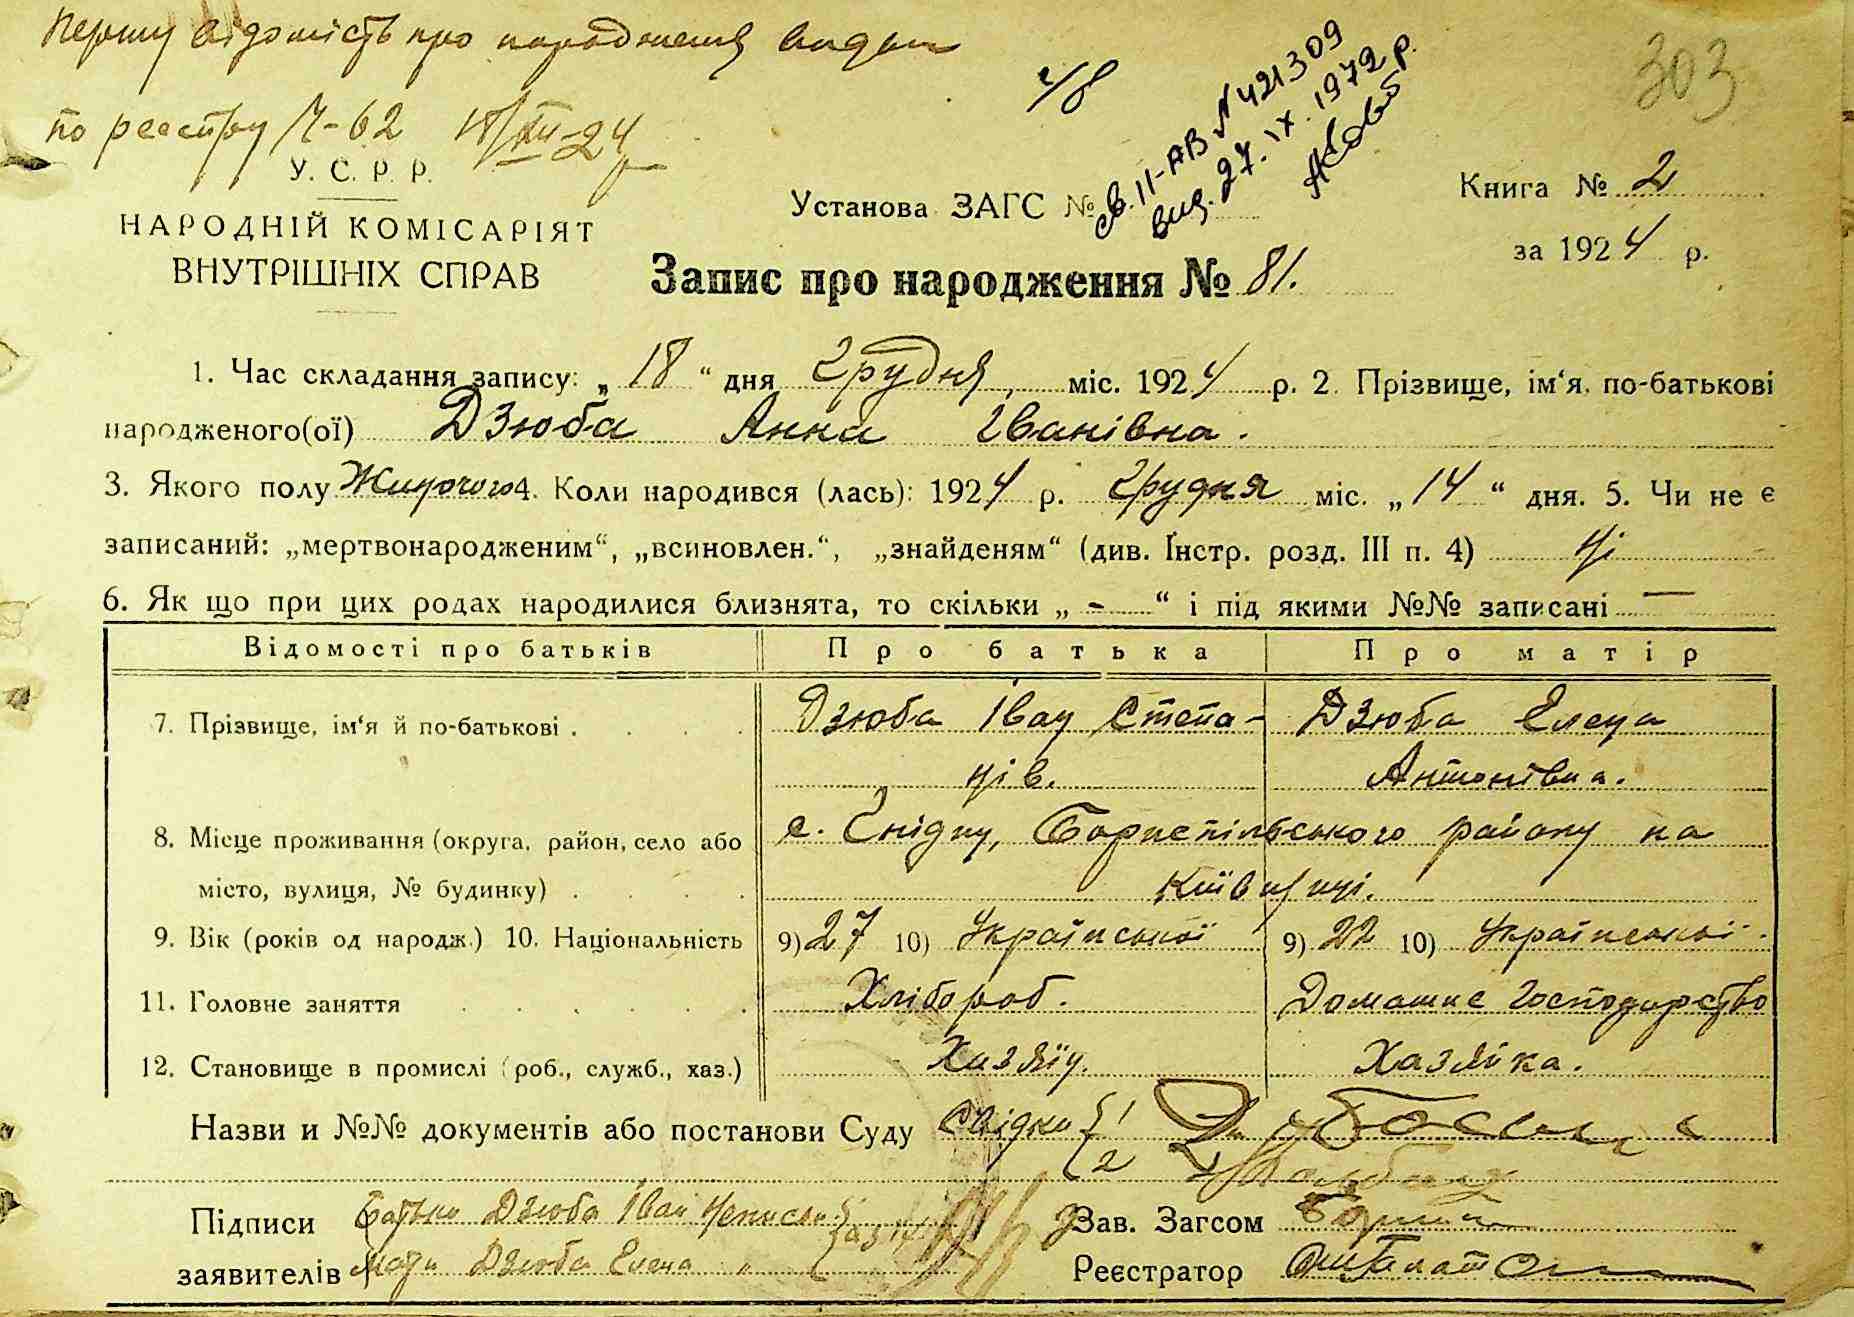 Першу відомість про народження видан
по реєстру Ч-62 18/XII-24 р
303
св. II-АВ N 421309
вид. 27. IX. 1972 р.
У. С. Р. Р.
НАРОДНІЙ КОМІСАРІЯТ
ВНУТРІШНІХ СПРАВ
Установа ЗАГС №
Книга № 2
за 1924 р.
Запис про народження № 81.
1. Час складання запису: „18“ дня Грудня міс. 1924 р. 2. Прізвище, ім‘я, по-батькові
народженого(ої) Дзюба Анна Іванівна.
3. Якого полу Жиночого 4. Коли народився (лась): 1924 р. Грудня міс. „14“ дня. 5. Чи не є
записаний: „мертвонародженим“, „всиновлен.“, „знайденям“ (див. Інстр. розд. III п. 4) Ні
6. Як що при цих родах народилися близнята, то скільки „ - “ і під якими №№ записані —
Відомості про батьків Про батька Про матір
7. Прізвище, ім‘я й по-батькові . Дзюба Іван Степа- Дзюба Елена
нів. Антонівна.
8. Місце проживання (округа, район, село або с. Гнідин, Бориспільського району на
місто, вулиця, № будинку) . Київщині.
9. Вік (років од народж.) 10. Національність 9) 27 10) Української 9) 22 10) Української
11. Головне заняття Хлібороб. Домашнє Господарство
12. Становище в промислі (роб., служб., хаз.) Хазяїн. Хазяйка.
Назви и №№ документів або постанови Суду Свідки { 1
2
Підписи Батько Дзюба Іван Зав. Загсом
заявителів Мати Дзюба Елена " Реєстратор